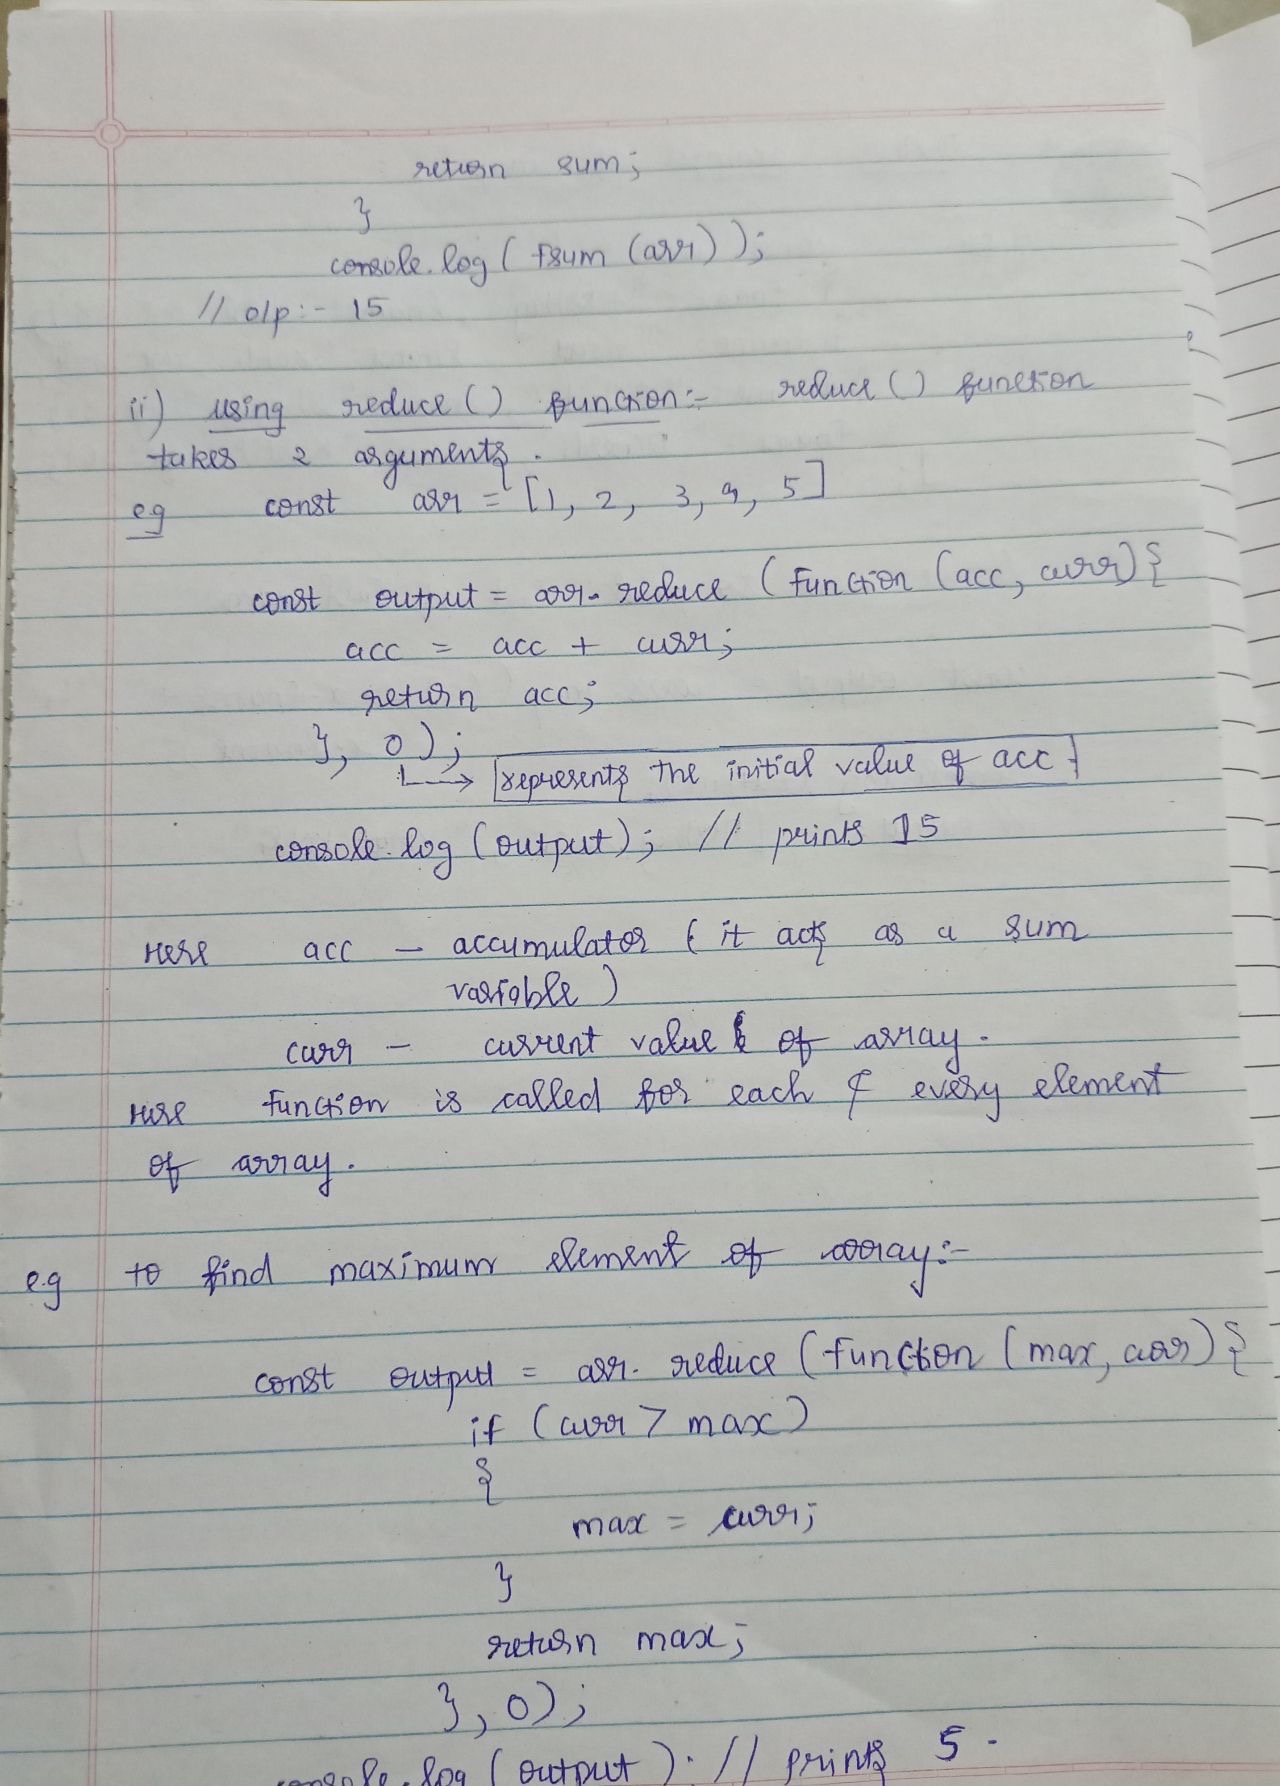 return sum;
}
console.log( fsum (arr));
// o/p:- 15
ii) using reduce () function:- reduce () function
takes 2 arguments.
eg const arr = [1, 2, 3, 4, 5]
const output = arr. reduce (function (acc, curr){
acc = acc + curr;
return acc;
}, 0);
represents the initial value of acc
console.log (output); // prints 15
Here acc - accumulator ( it acts as a sum
variable )
curr - current value of array.
Here function is called for each & every element
of array.
eg to find maximum element of array:-
const output = arr. reduce (function (max, curr) {
if (curr > max)
{
max = curr;
}
return max;
}, 0);
console.log (output); // prints 5.